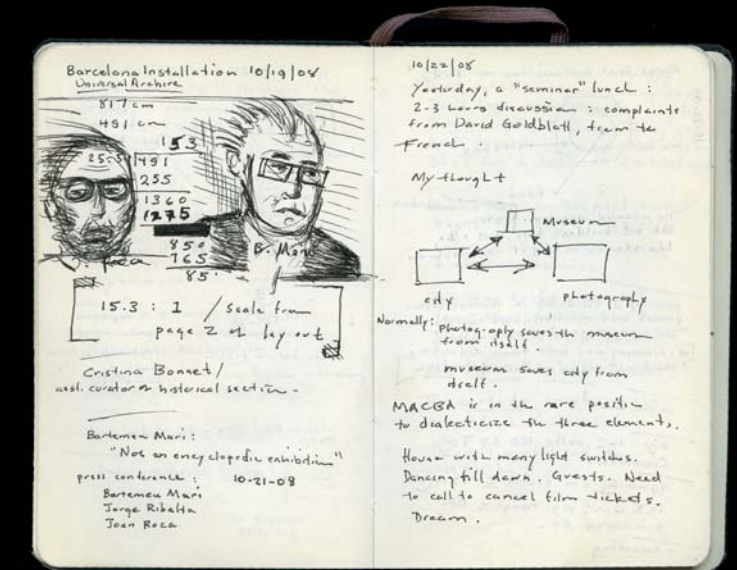 Barcelona Installation 10/19/08
Universal Archive
817 cm
491 cm
15 3
25.5 491
255
1360
1275
850
765
85
B. Mari
15.3 : 1 / Scale from
page 2 of lay out
Cristina Bonnet /
asst. curator of historical section -
Bartemeu Mari :
"Not an encyclopedic exhibition"
press conference : 10-21-08
Bartemeu Mari
Jorge Ribalta
Joan Roca
10/22/08
Yesterday, a "seminar" lunch :
2-3 hours discussion : complaints
from David Goldblatt, from the
French.
My thought
Museum
city photography
Normally: photography saves the museum
from itself
museum saves city from
itself.
MACBA is in the rare position
to dialecticize the three elements.
House with many light switches.
Dancing till dawn. Guests. Need
to call to cancel film tickets.
Dream.